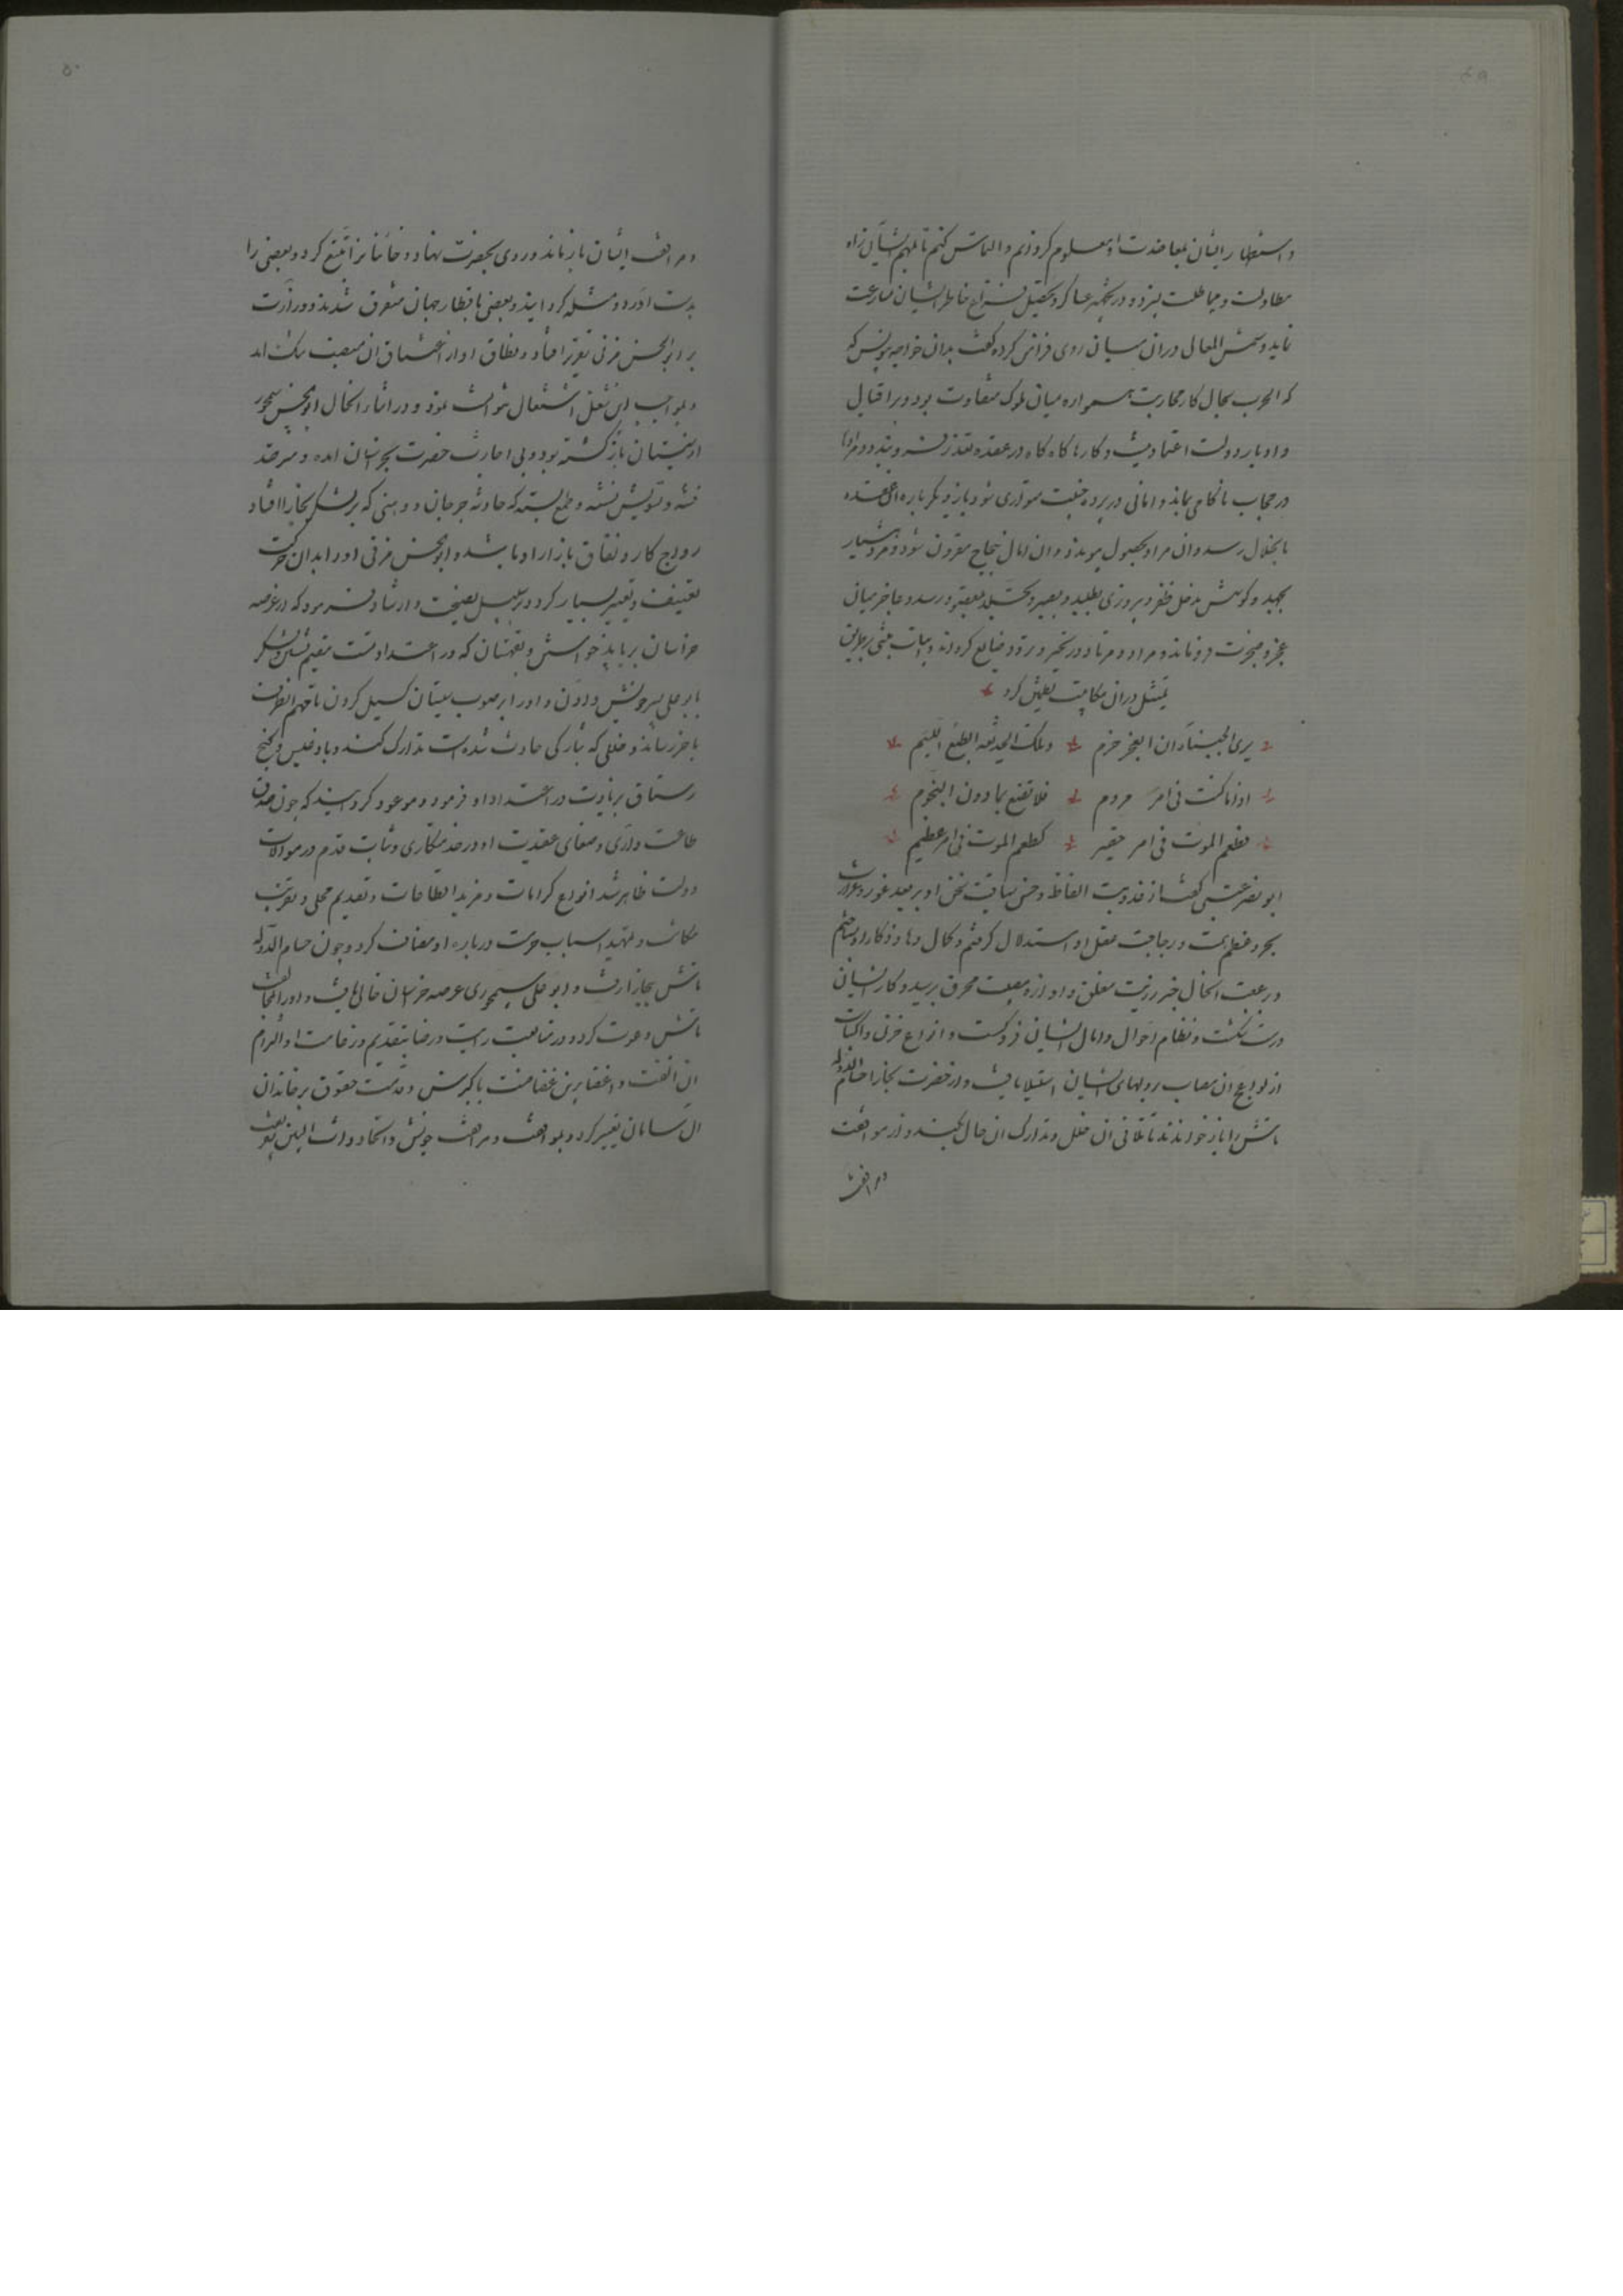 و استظهار ایشان بمعاضدت او معلوم کردانم و التماس کنم تا بمهم ایشان زاه
مطاولت و مماطلت نسپرد و در تجهیز عساکر و تحصیل فراغ خاطر ایشان مسارعت
نماید و شمس المعالی در ان میان روی فرا من کرد و کفت بدان خواجه یونس که
که الحرب سجال کار محاربت همواره میان ملوک متفاوت بود و بر اقبال
و ادبار دولت اعتماد نیست و کارها کاه کاه در عقده تعذر فرو بندد و مرادها
در حجاب ناکامی بماند و امانی در پرده خیبت متواری شود باز دیکر باره ان عقده
بانحلال رسد و ان مراد بحصول پیوندد و ان امال بنجاح مقرون شود و مرد هشیار
بجهد و کوشش مدخل ظفر و پیروزی بطلبد و بصبر و تجلد بمقصود رسد و عاجز میان
عجز و ضجرت فرو ماند و مراد و مرتاد در تحیر و تردد ضایع کرداند و ابیات متنبی بر طریق
تمثل در ان مکاتبت تضمین کرد
یری الجبناء ان العجز حزم و تلک الخدیعه الطبع اللئیم
اذا ما کنت فی امر مروم فلا تقنع بما دون النجوم
فطعم الموت فی امر حقیر کطعم الموت فی امر عظیم
ابو نصر عتبی کفت از عذوبت الفاظ و حسن سیاقت سخن او بر بعد غور و غزارت
بحر و عظم همت و رجاحت عقل او استدلال کرفتم و کمال دها و ذکاء او بشناختم
و در عقب الحال خبر رزیت مقلق و اوازه مصیبت محرق برسید و کار ایشان
درست بشکست و نظام احوال و امال ایشان فرو کست و انواع حزن و اکتیاب
از لواعج ان مصاب بر دلهای ایشان استیلا یافت و از حضرت بخارا حسام الدوله
تاش را باز خواندند تا تلافی ان خلل و تدارک ان حال بکند و از موافقت
و مرافقت
و مرافقت ایشان باز ماند و روی بحضرت نهاد و خاینانرا تتبع کرد و بعضی را
بدست اورد و مثله کردانید و بعضی باقطار جهان متفرق شدند و وزارت
بر ابو الحسن مزنی تقریر افتاد و نطاق او از اعتناق ان منصب تنک امد
و بمواجب ان شغل اشتغال نتوانست نمود و در اثناء الحال ابو الحسن سیمجور
از سیستان باز کشته بود و بی اجازت حضرت بخراسان امده و مترصد
فتنه و تشویش نشسته و طمع بسته که حادثه جرجان و وهنی که بر لشکر بخارا افتاد
رواج کار و نفاق بازار او باشد و ابو الحسن مزنی او را بدان حرکت
تعنیف و تعییر بسیار کرد و بر سبیل نصیحت و ارشاد فرمود که از عرصه
خراسان بر باید خواستن و بقهستان که در اعتداد تست مقیم نشستن و لشکر
با بو علی پسر خویش دادن و او را بر صوب سیستان کسیل کردن تا مهم ان طرف
باخر رساند و خللی که بتازکی حادث شده است تدارک کند و بادغیس و کنج
رستاق بزیادت در اعتداد او فرمود و موعود کردانید که چون صدق
طاعت داری و صفای عقیدت او در خدمتکاری و ثبات قدم در موالات
دولت ظاهر شد انواع کرامات و مزید اقطاعات و تقدیم محل و تقریب
مکانت و تمهید اسباب حرمت درباره او مضاف کرد و چون حسام الدوله
تاش ببخارا رفت و ابو علی سیمجوری عرصه خراسان خالی یافت و او را بمخالفت
تاش دعوت کرد و در متابعت رایت و رضا بتقدیم و زعامت او و التزام
ان انفت و اغضا برین غضاضت با کبر سن و قدمت حقوق بر خاندان
ال سامان تعییر کرد و بموافقت و مرافقت خویش و اتحاد ذات البین بتقویت